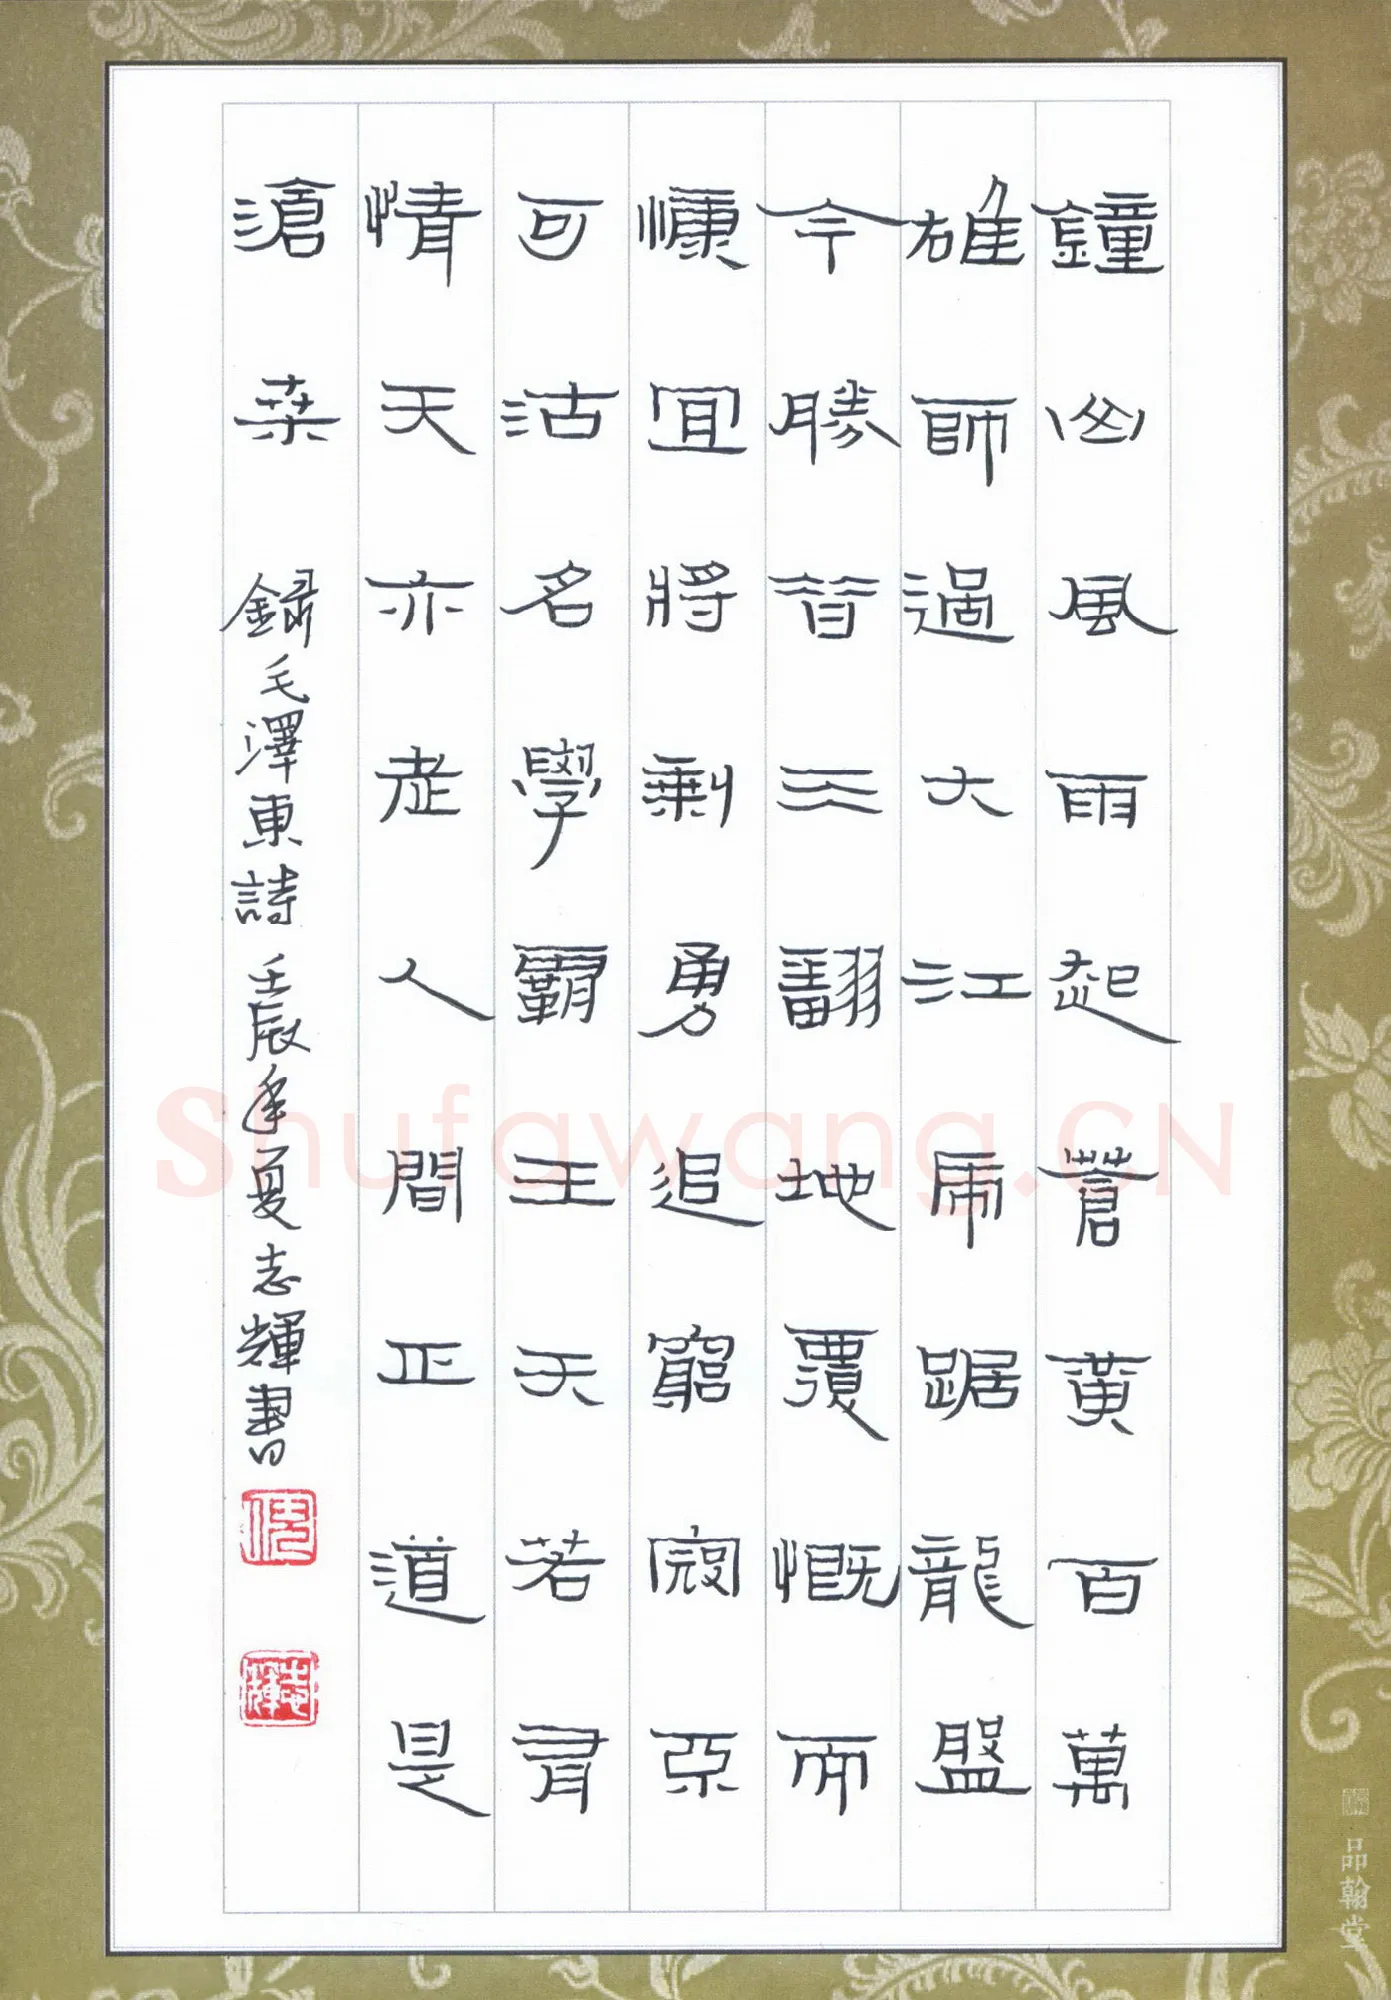 鐘山風雨起蒼黃百萬
雄師過大江虎踞龍盤
今勝昔天翻地覆慨而
慷宜將剩勇追窮寇不
可沽名學霸王天若有
情天亦老人間正道是
滄桑 錄毛澤東詩 壬辰年夏志輝書
志輝
品翰堂
Shufawang.CN